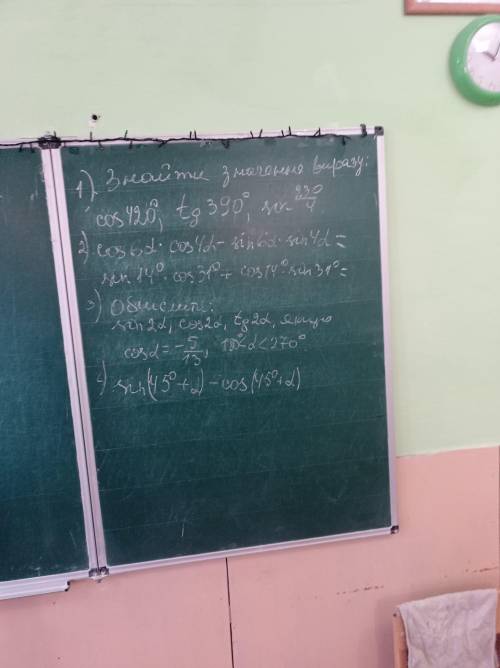 1) Знайти значення виразу:
cos420°, tg 390°, sin
2) cos6α·cos4α-sin6α·sin4α=
sin 14°·cos31°+cos14°·sin31°=
3) Обчислити:
sin2α, cos2α, tg2α, якщо
cosα=-5/13, 180°<α<270°
4) sin(45°+α)-cos(45°+α)